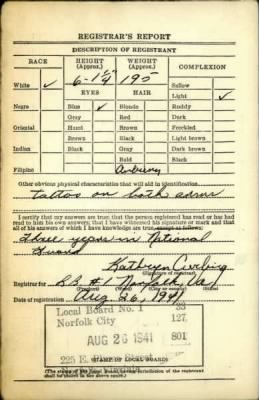 REGISTRAR'S REPORT
DESCRIPTION OF REGISTRANT
RACE HEIGHT (Approx.) WEIGHT (Approx.) COMPLEXION
6-1 195
White ✓ Sallow
EYES HAIR Light ✓
Negro Blue ✓ Blonde Ruddy
Gray Red Dark
Oriental Hazel Brown Freckled
Brown Black Light brown
Indian Black Gray Dark brown
Bald Black
Filipino
Other obvious physical characteristics that will aid in identification
tattoo on both arms
I certify that my answers are true; that the person registered has read or has had
read to him his own answers; that I have witnessed his signature or mark and that
all of his answers of which I have knowledge are true, except as follows:
Three years in National
Guard
Kathryn
(Signature of registrar)
Registrar for Norfolk, Va
(City or county) (State)
Date of registration Aug 26, 1941
Local Board No. 1 32
Norfolk City 127
AUG 26 1941 801
225 E.
(STAMP OF LOCAL BOARD)